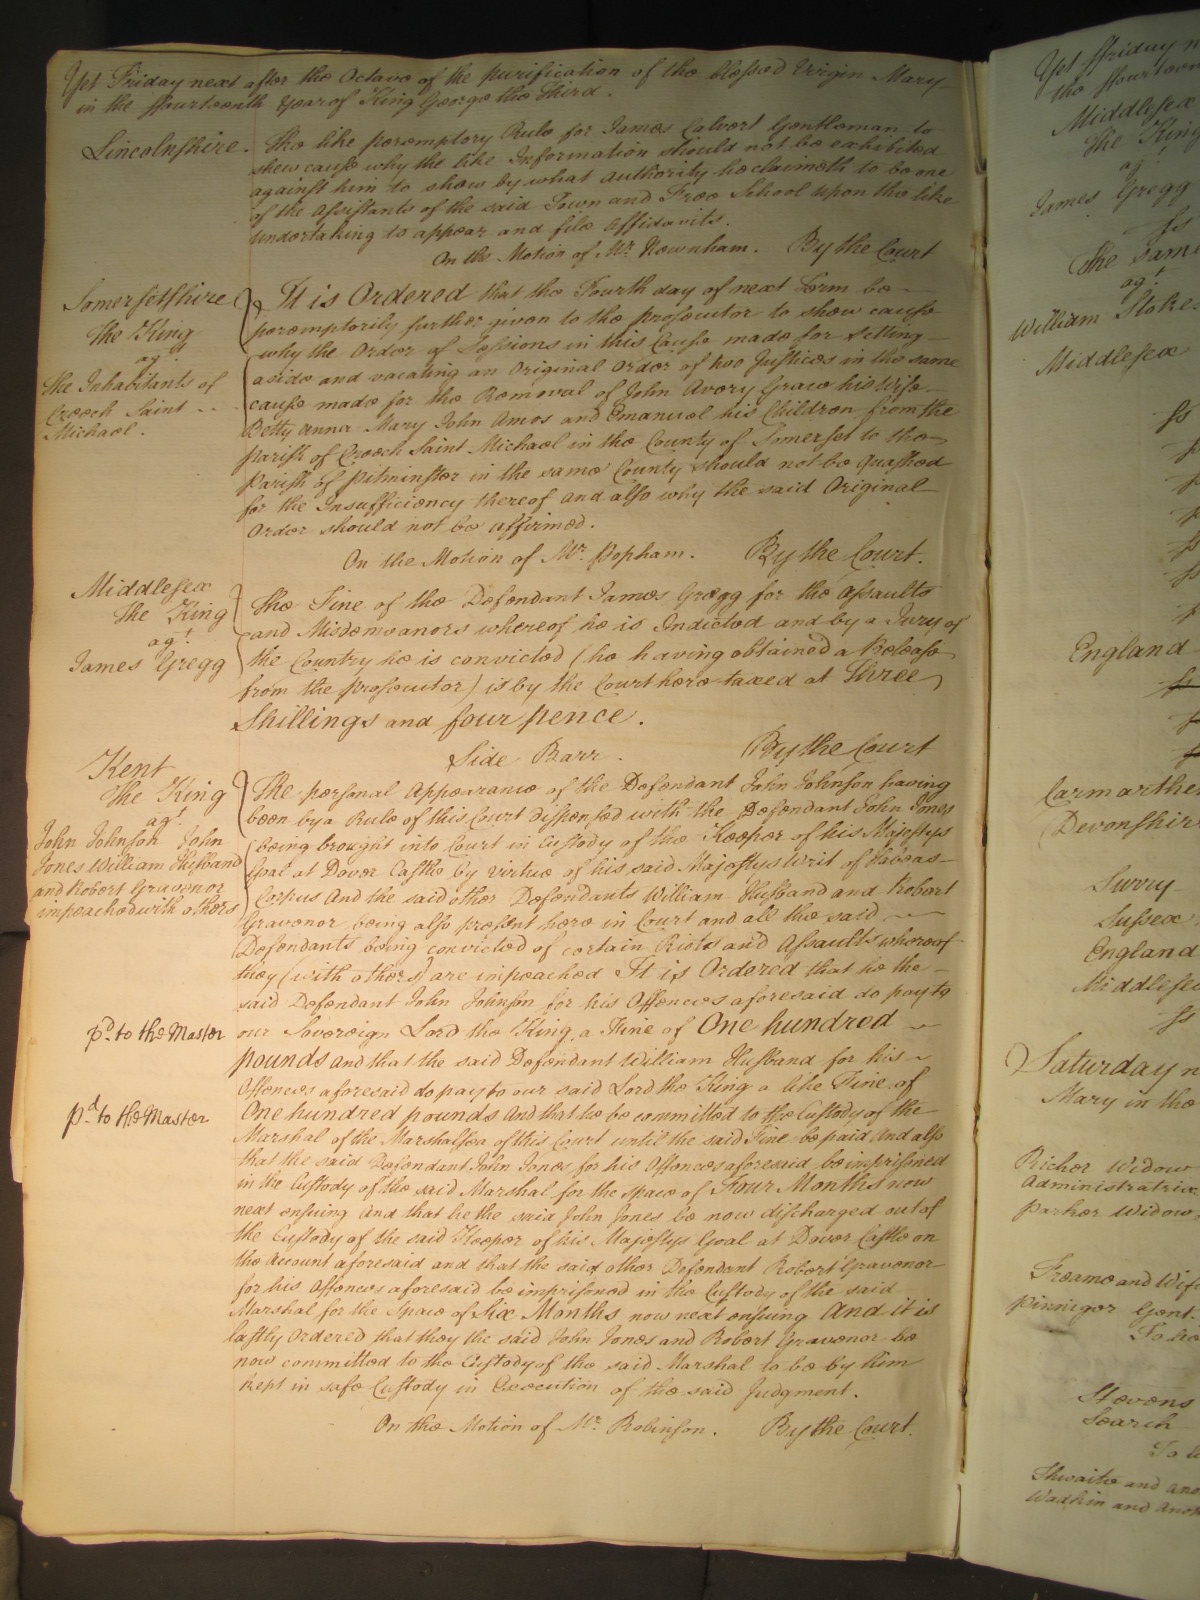 Yet Friday next after the Octave of the purification of the blessed Virgin Mary
in the ffourteenth Year of King George the Third.
Lincolnshire. The like peremptory Rule for James Calvert Gentleman to
shew cause why the like Information should not be exhibited
against him to show by what authority he claimeth to be one
of the Assistants of the said Town and Free School upon the like
undertaking to appear and file Affidavits.
On the Motion of Mr. Newnham. By the Court
Somersetshire
The King
agt.
the Inhabitants of
Creech Saint
Michael.
It is Ordered that the Fourth day of next Term be
peremptorily further given to the prosecutor to show cause
why the Order of Sessions in this Cause made for setting
aside and vacating an Original Order of two Justices in the same
cause made for the Removal of John Avory Grace his Wife
Betty Anna Mary John Amos and Emanuel his Children from the
parish of Creech Saint Michael in the County of Somerset to the
Parish of Pitminster in the same County should not be Quashed
for the Insufficiency thereof and also why the said Original
Order should not be affirmed.
On the Motion of Mr. Popham. By the Court.
Middlesex
The King
agt.
James Gregg
The Fine of the Defendant James Gregg for the assaults
and Misdemeanors whereof he is Indicted and by a Jury of
the Country he is convicted (he having obtained a Release
from the prosecutor) is by the Court here taxed at Three
Shillings and four pence.
Side Barr. By the Court
Kent
The King
agt.
John Johnson John
Jones William Husband
and Robert Gravenor
impeached with others
The personal Appearance of the Defendant John Johnson having
been by a Rule of this Court dispensed with the Defendant John Jones
being brought into Court in Custody of the Keeper of his Majestys
Goal at Dover Castle by virtue of his said Majestys Writ of Habeas
Corpus And the said other Defendants William Husband and Robert
Gravenor being also present here in Court and all the said
Defendants being convicted of certain Riots and Assaults whereof
they (with others) are impeached It is Ordered that he the
said Defendant John Johnson for his Offences aforesaid do pay to
pd. to the Master our Sovereign Lord the King a Fine of One hundred
pounds and that the said Defendant William Husband for his
Offences aforesaid do pay to our said Lord the King a like Fine of
pd. to the Master One hundred pounds And that he be committed to the Custody of the
Marshal of the Marshalsea of this Court until the said Fine be paid And also
that the said Defendant John Jones for his Offences aforesaid be imprisoned
in the Custody of the said Marshal for the space of Four Months now
next ensuing And that he the said John Jones be now discharged out of
the Custody of the said Keeper of his Majestys Goal at Dover Castle on
the Account aforesaid and that the said other Defendant Robert Gravenor
for his Offences aforesaid be imprisoned in the Custody of the said
Marshal for the Space of Six Months now next ensuing And it is
lastly Ordered that they the said John Jones and Robert Gravenor be
now committed to the Custody of the said Marshal to be by him
kept in safe Custody in Execution of the said Judgment.
On the Motion of Mr. Robinson. By the Court.
Yet ffriday n
the ffourteen
Middlesex
The King
agt.
James Gregg
ss
The Same
agt.
William Stoke
Middlesex
ss
England
Carmarthe
Devonshir
Surry
Sussex
England
Middlesex
ss
Saturday n
Mary in the
Richer Widow
Administratrix
Parker Widow
Freame and Wife
Pinniger Gent.
Stevens
Search
To
Thwaite and ano
Wadkin and Anoth